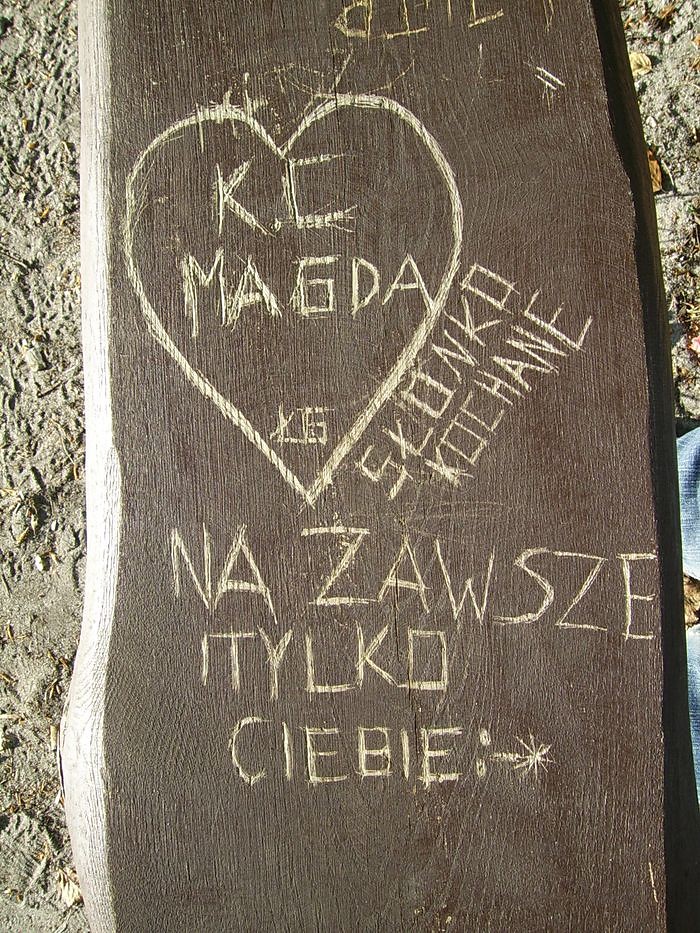 KC
MAGDA
KG
SŁONKO
KOCHANE
NA ZAWSZE
I TYLKO
CIEBIE :-*